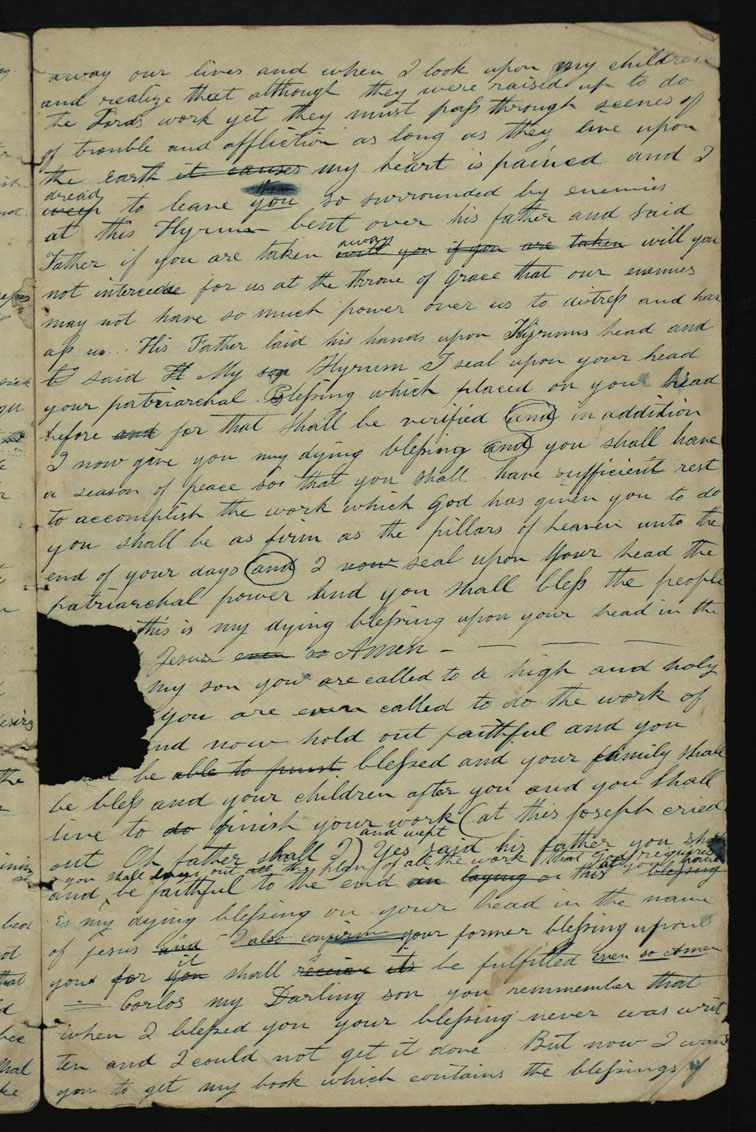 away our lives and when I look upon my children
and realize that although they were raised up to do
the Lords work yet they must pass through scenes of
of trouble and affliction as long as they live upon
the Earth it causes my heart is pained and I
dread
weep to leave you so surrounded by enemies
at this Hyrum bent over his father and said
Father if you are taken away will you if you are taken will you
not intercede for us at the throne of Grace that our enemies
may not have so much power over us to distress and har
ass us. His Father laid his hands upon Hyrums head and
said My son Hyrum I seal upon your head
your patriarchal Blessing which placed on you head
before and for that shall be verified and in addition
I now give you my dying blessing and you shall have
a season of peace so that you shall have sufficient rest
to accomplish the work which God has given you to do
you shall be as firm as the pillars of heaven unto the
end of your days and I now seal upon your head the
patriarchal power and you shall bless the people
this is my dying blessing upon your head in the
Jesus even so Amen —
my son you are called to a high and holy
you are even called to do the work of
nd now hold out faithful and you
be able to finish blessed and your family shall
be bless and your children after you and you shall
live to do finish your work (at this Joseph cried
and wept
out Oh father shall I?) Yes said his father you shall
you shall lay out all the plan of all the work that God requires at your hand
and be faithful to the end in laying on this blessing
is my dying blessing on your head in the name
of jesus and I also confirm your former blessing upon
you for it you shall receive its be fulfilled even so Amen
— Carlos my Darling son you remmember that
when I blessed you your blessing never was writ
ten and I could not get it done But now I want
you to get my book which contains the blessings of